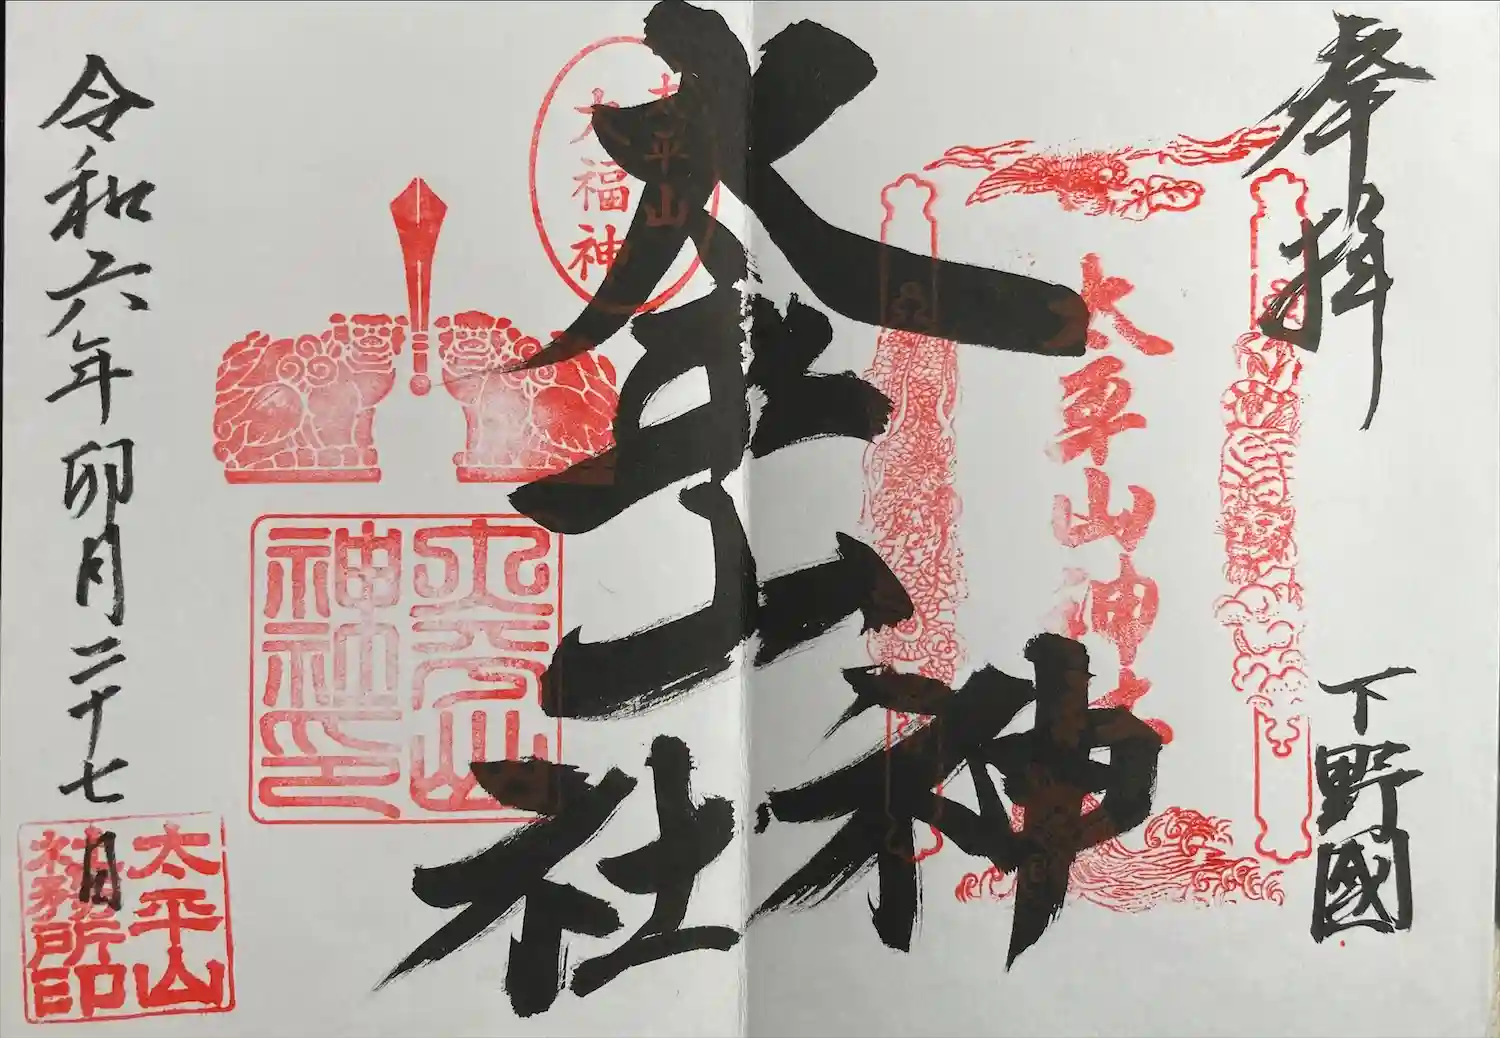 奉拝
下野國
太平山神社
太平山
神社
太平山
大福神
太平山
神社印
令和六年卯月二十七日
太平山
社務所印